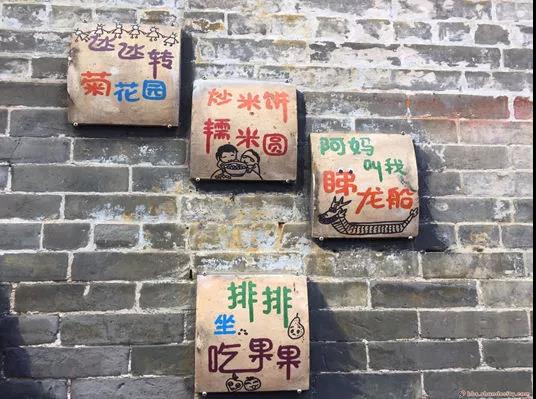 氹氹转
菊花园
炒米饼
糯米圆
阿妈
叫我
睇龙船
排排
坐
吃果果
bbs.shundecity.com